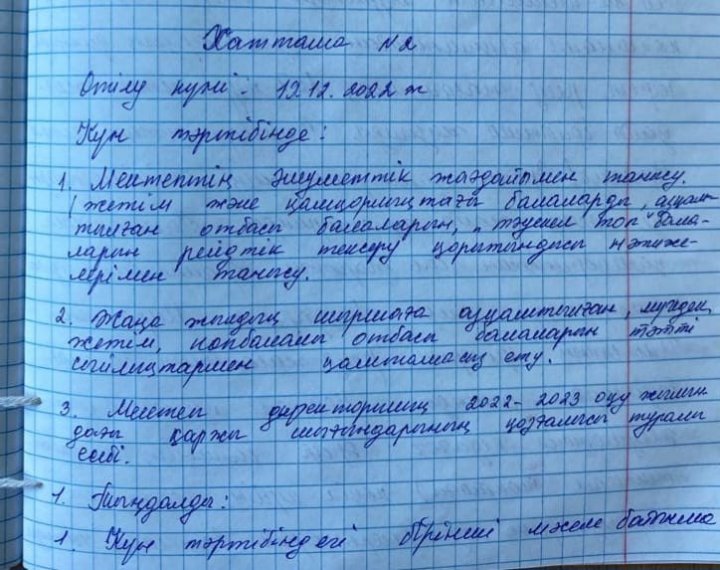 Хаттама №2
Өтілу күні: 12.12.2022 ж
Күн тәртібінде:
1. Мектептің әлуметтік жағдайымен танысу.
(жетім және қамқорлықтағы балаларды, аз қам-
тылған отбасы балаларын, "тәуекел топ" бала-
ларын рейдтік тексеру қорытындысы нәтиже-
лерімен танысу.
2. Жаңа жылдық шыршаға аз қамтылған, мүгедек,
жетім, көпбалалы отбасы балаларын тәтті
сыйлықтармен қамтамасыз ету.
3. Мектеп директорының 2022-2023 оқу жылын
дағы қаржы шығындарының қозғалысы туралы
есебі.
1. Тыңдалды:
1. Күн тәртібіндегі бірінші мәселе бойынша